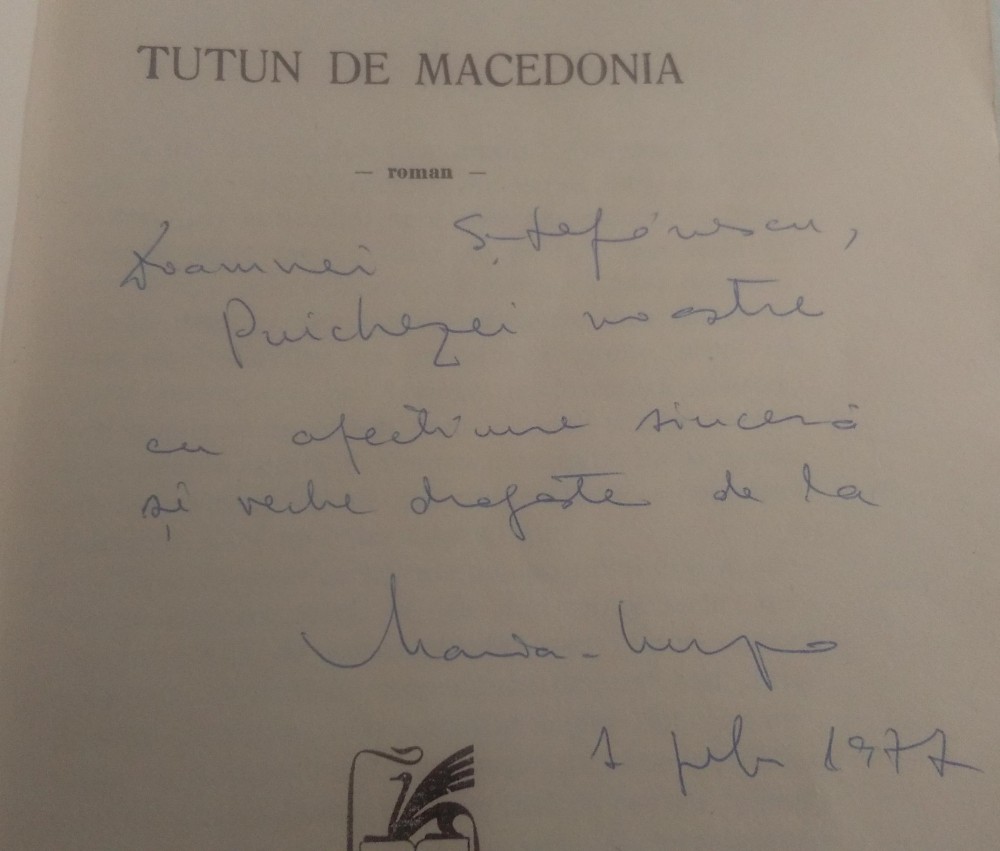 TUTUN DE MACEDONIA
— roman —
Doamnei Ștefănescu,
Puichezei noastre
cu afecțiune sinceră
și veche dragoste de la
1 febr 1977